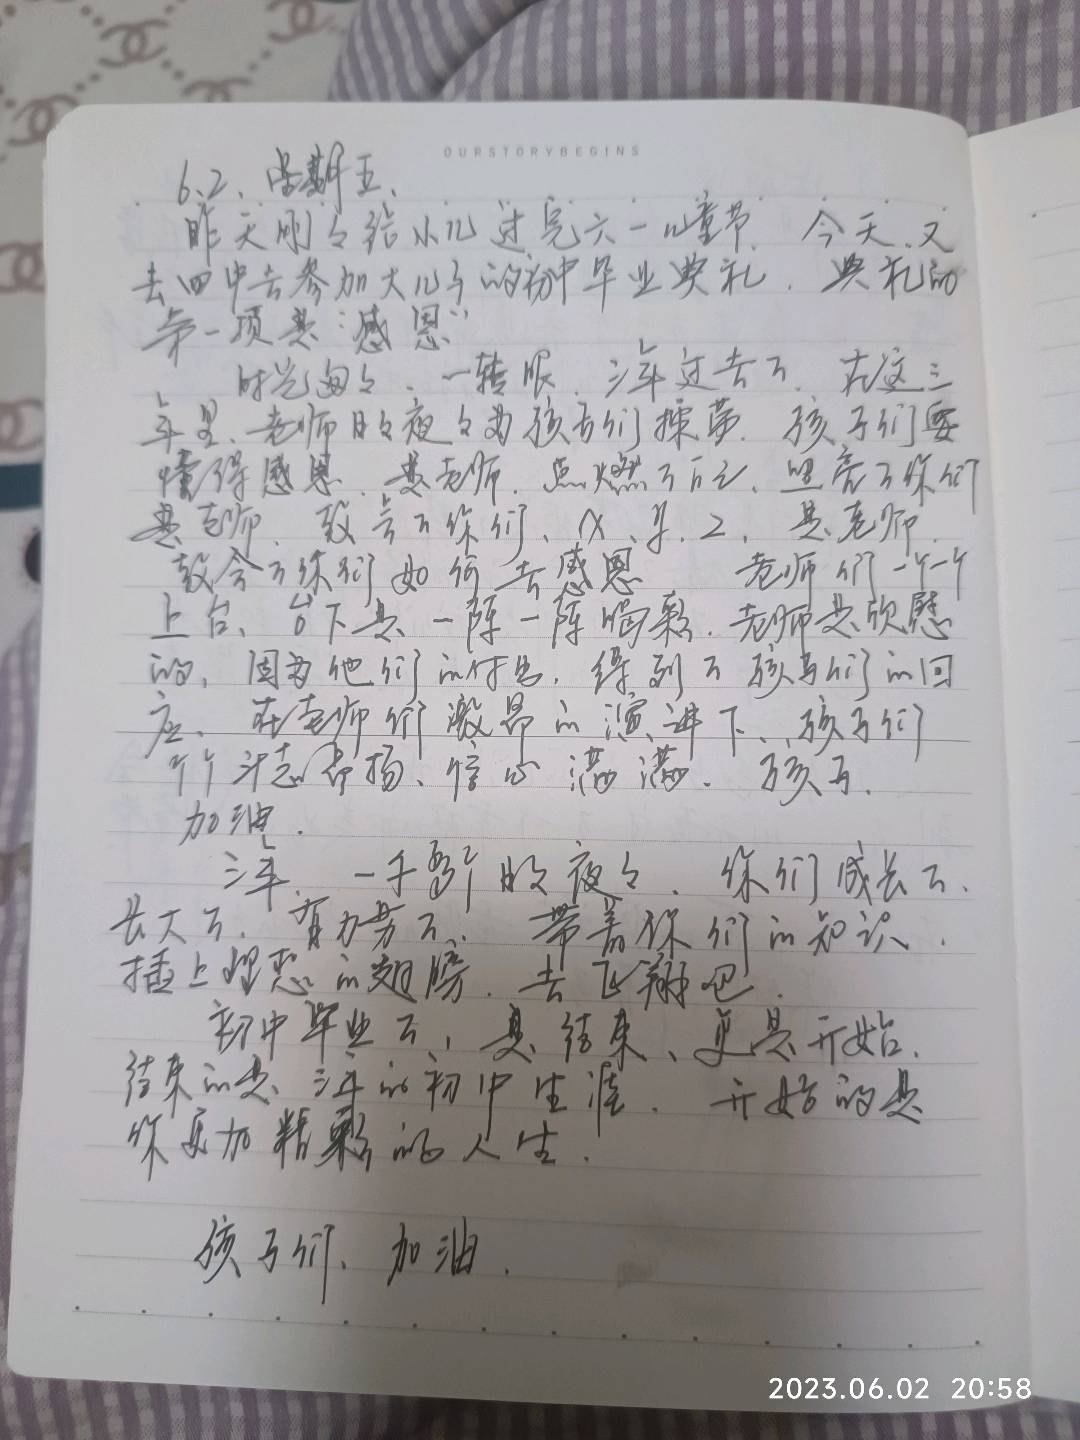 OURSTORYBEGINS
6.2. 星期五.
昨天刚々给小儿过完六一儿童节. 今天.又
去四中去参加大儿子的初中毕业典礼. 典礼的
第一项是"感恩"
时光匆々. 一转眼. 三年过去了. 在这三
年里、老师日々夜々为孩子们操劳. 孩子们要
懂得感恩. 是老师. 点燃了自己、照亮了你们
是老师. 教会了你们、X、Y、Z、是老师.
教会了你们如何去感恩 老师们一个一个
上台、台下是一阵一阵喝彩. 老师是欣慰
的, 因为他们的付出. 得到了孩子们的回
应、在老师们激昂的演讲下、孩子们
个个斗志昂扬、信心满满. 孩子.
加油.
三年. 一千多个日々夜々. 你们成长了、
长大了. 有力劳了. 带着你们的知识.
插上理想的翅膀. 去飞翔吧.
初中毕业了, 是结束、更是开始.
结束的是、三年的初中生涯. 开始的是
你更加精彩的人生.
孩子们、加油.
2023.06.02 20:58